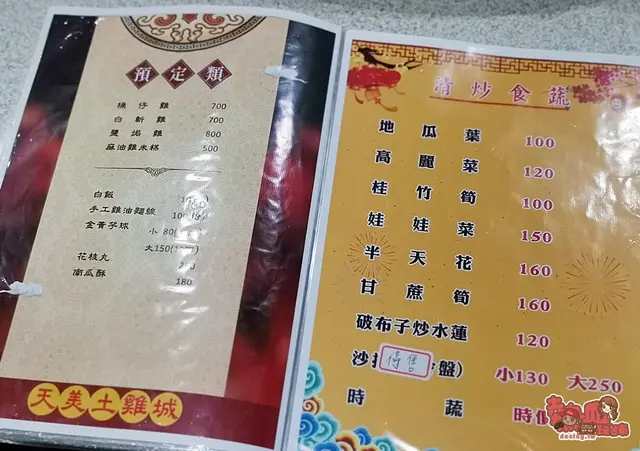 預定類
桶仔雞 700
白斬雞 700
鹽焗雞 800
麻油雞米糕 500
白飯
手工雞油麵線 100
金膏芋球 小 80
大150
花枝丸
南瓜酥 180
天美土雞城
清炒食蔬
地瓜葉 100
高麗菜 120
桂竹筍 100
娃娃菜 150
半天花 160
甘蔗筍 160
破布子炒水蓮 120
沙 停售 盤) 小130 大250
時蔬 時價